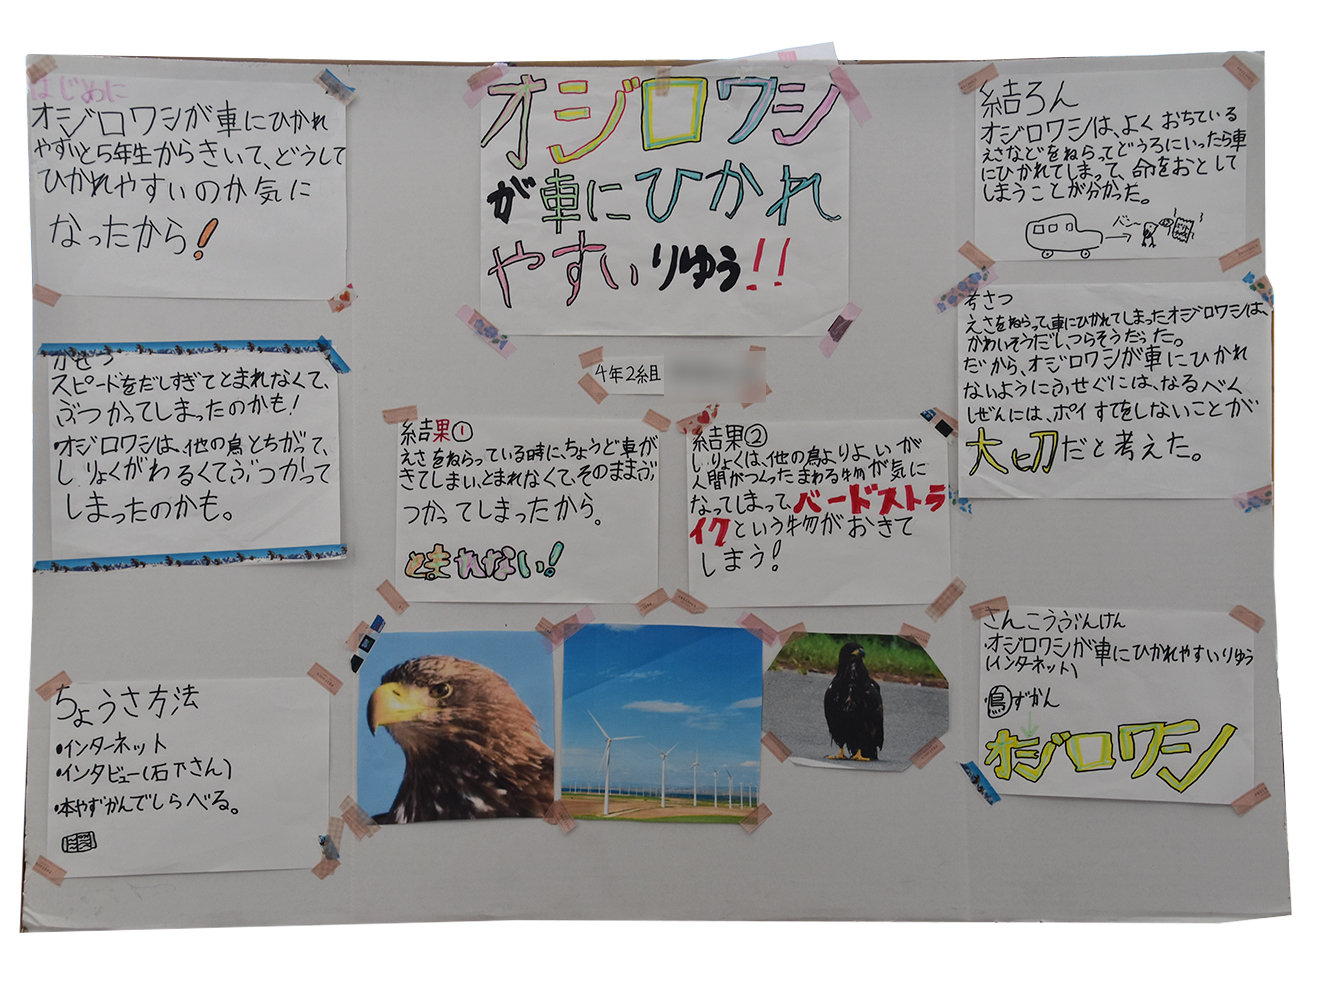 オジロワシ
が車にひかれ
やすいりゆう!!
4年2組
はじめに
オジロワシが車にひかれ
やすいと5年生からきいて、どうして
ひかれやすいのか気に
なったから!
かせつ
スピードをだしすぎてとまれなくて、
ぶつかってしまったのかも!
・オジロワシは、他の鳥とちがって、
しりょくがわるくてぶつかって
しまったのかも。
ちょうさ方法
・インターネット
・インタビュー(石下さん)
・本やずかんでしらべる。
結果①
えさをねらっている時に、ちょうど車が
きてしまい、とまれなくて、そのままぶ
つかってしまったから。
とまれない!
結果②
しりょくは、他の鳥よりよいが
人間がつくったまわる物が気に
なってしまって、バードストラ
イクという物がおきて
しまう!
結ろん
オジロワシは、よくおちている
えさなどをねらってどうろにいったら車
にひかれてしまって、命をおとして
しまうことが分かった。
バン
考さつ
えさをねらって、車にひかれてしまったオジロワシは、
かわいそうだし、つらそうだった。
だから、オジロワシが車にひかれ
ないようにふせぐには、なるべく
しぜんには、ポイすてをしないことが
大切だと考えた。
さんこうぶんけん
・オジロワシが車にひかれやすいりゆう
(インターネット)
・鳥ずかん
オジロワシ